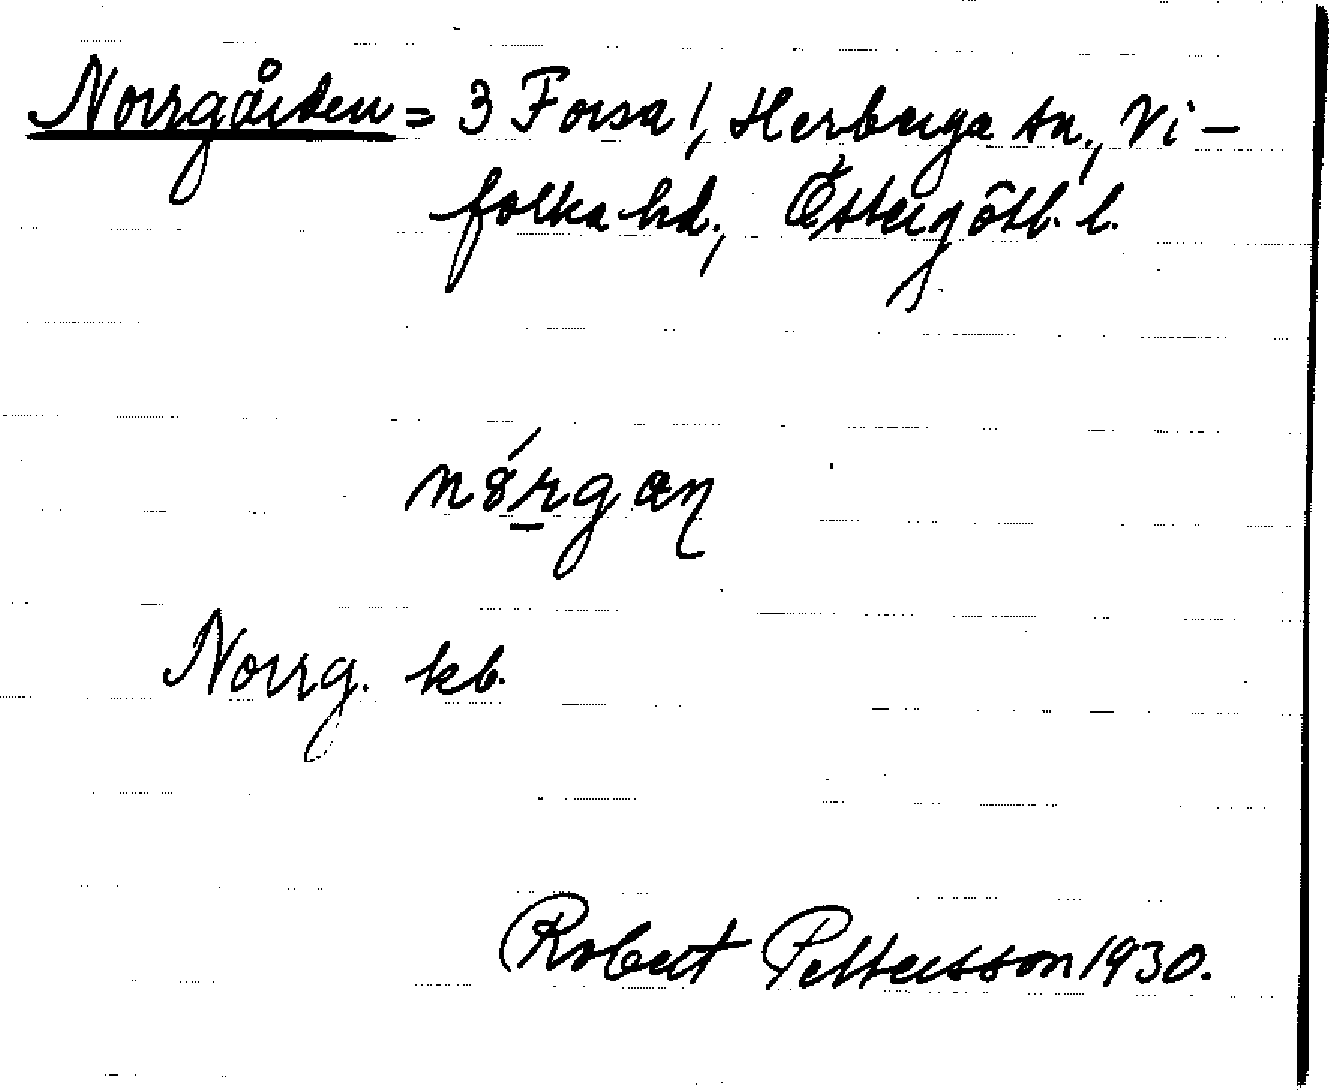 Norrgården = 3 Forsa!, Herberga sn., Vi-
folka hd., Östergötl. l.
nórgan
Norrg. kb.
Robert Pettersson 1930.